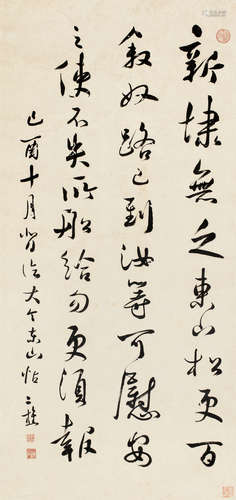 新埭無乏東山松更百
敘奴路已到汝等可慰安
之使不失所船給勿更須報
己酉十月背臨大令東山帖